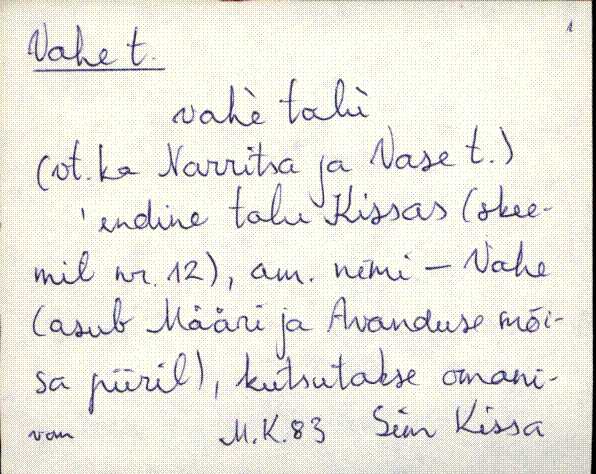 1
Vahe t.
vahè talù
(vt. ka Narritsa ja Vase t.)
'endine talu Kissas (skee-
mil nr. 12), am. nimi – Vahe
(asub Määri ja Avanduse mõi-
sa piiril), kutsutakse omani-
M.K.83 Siim Kissa